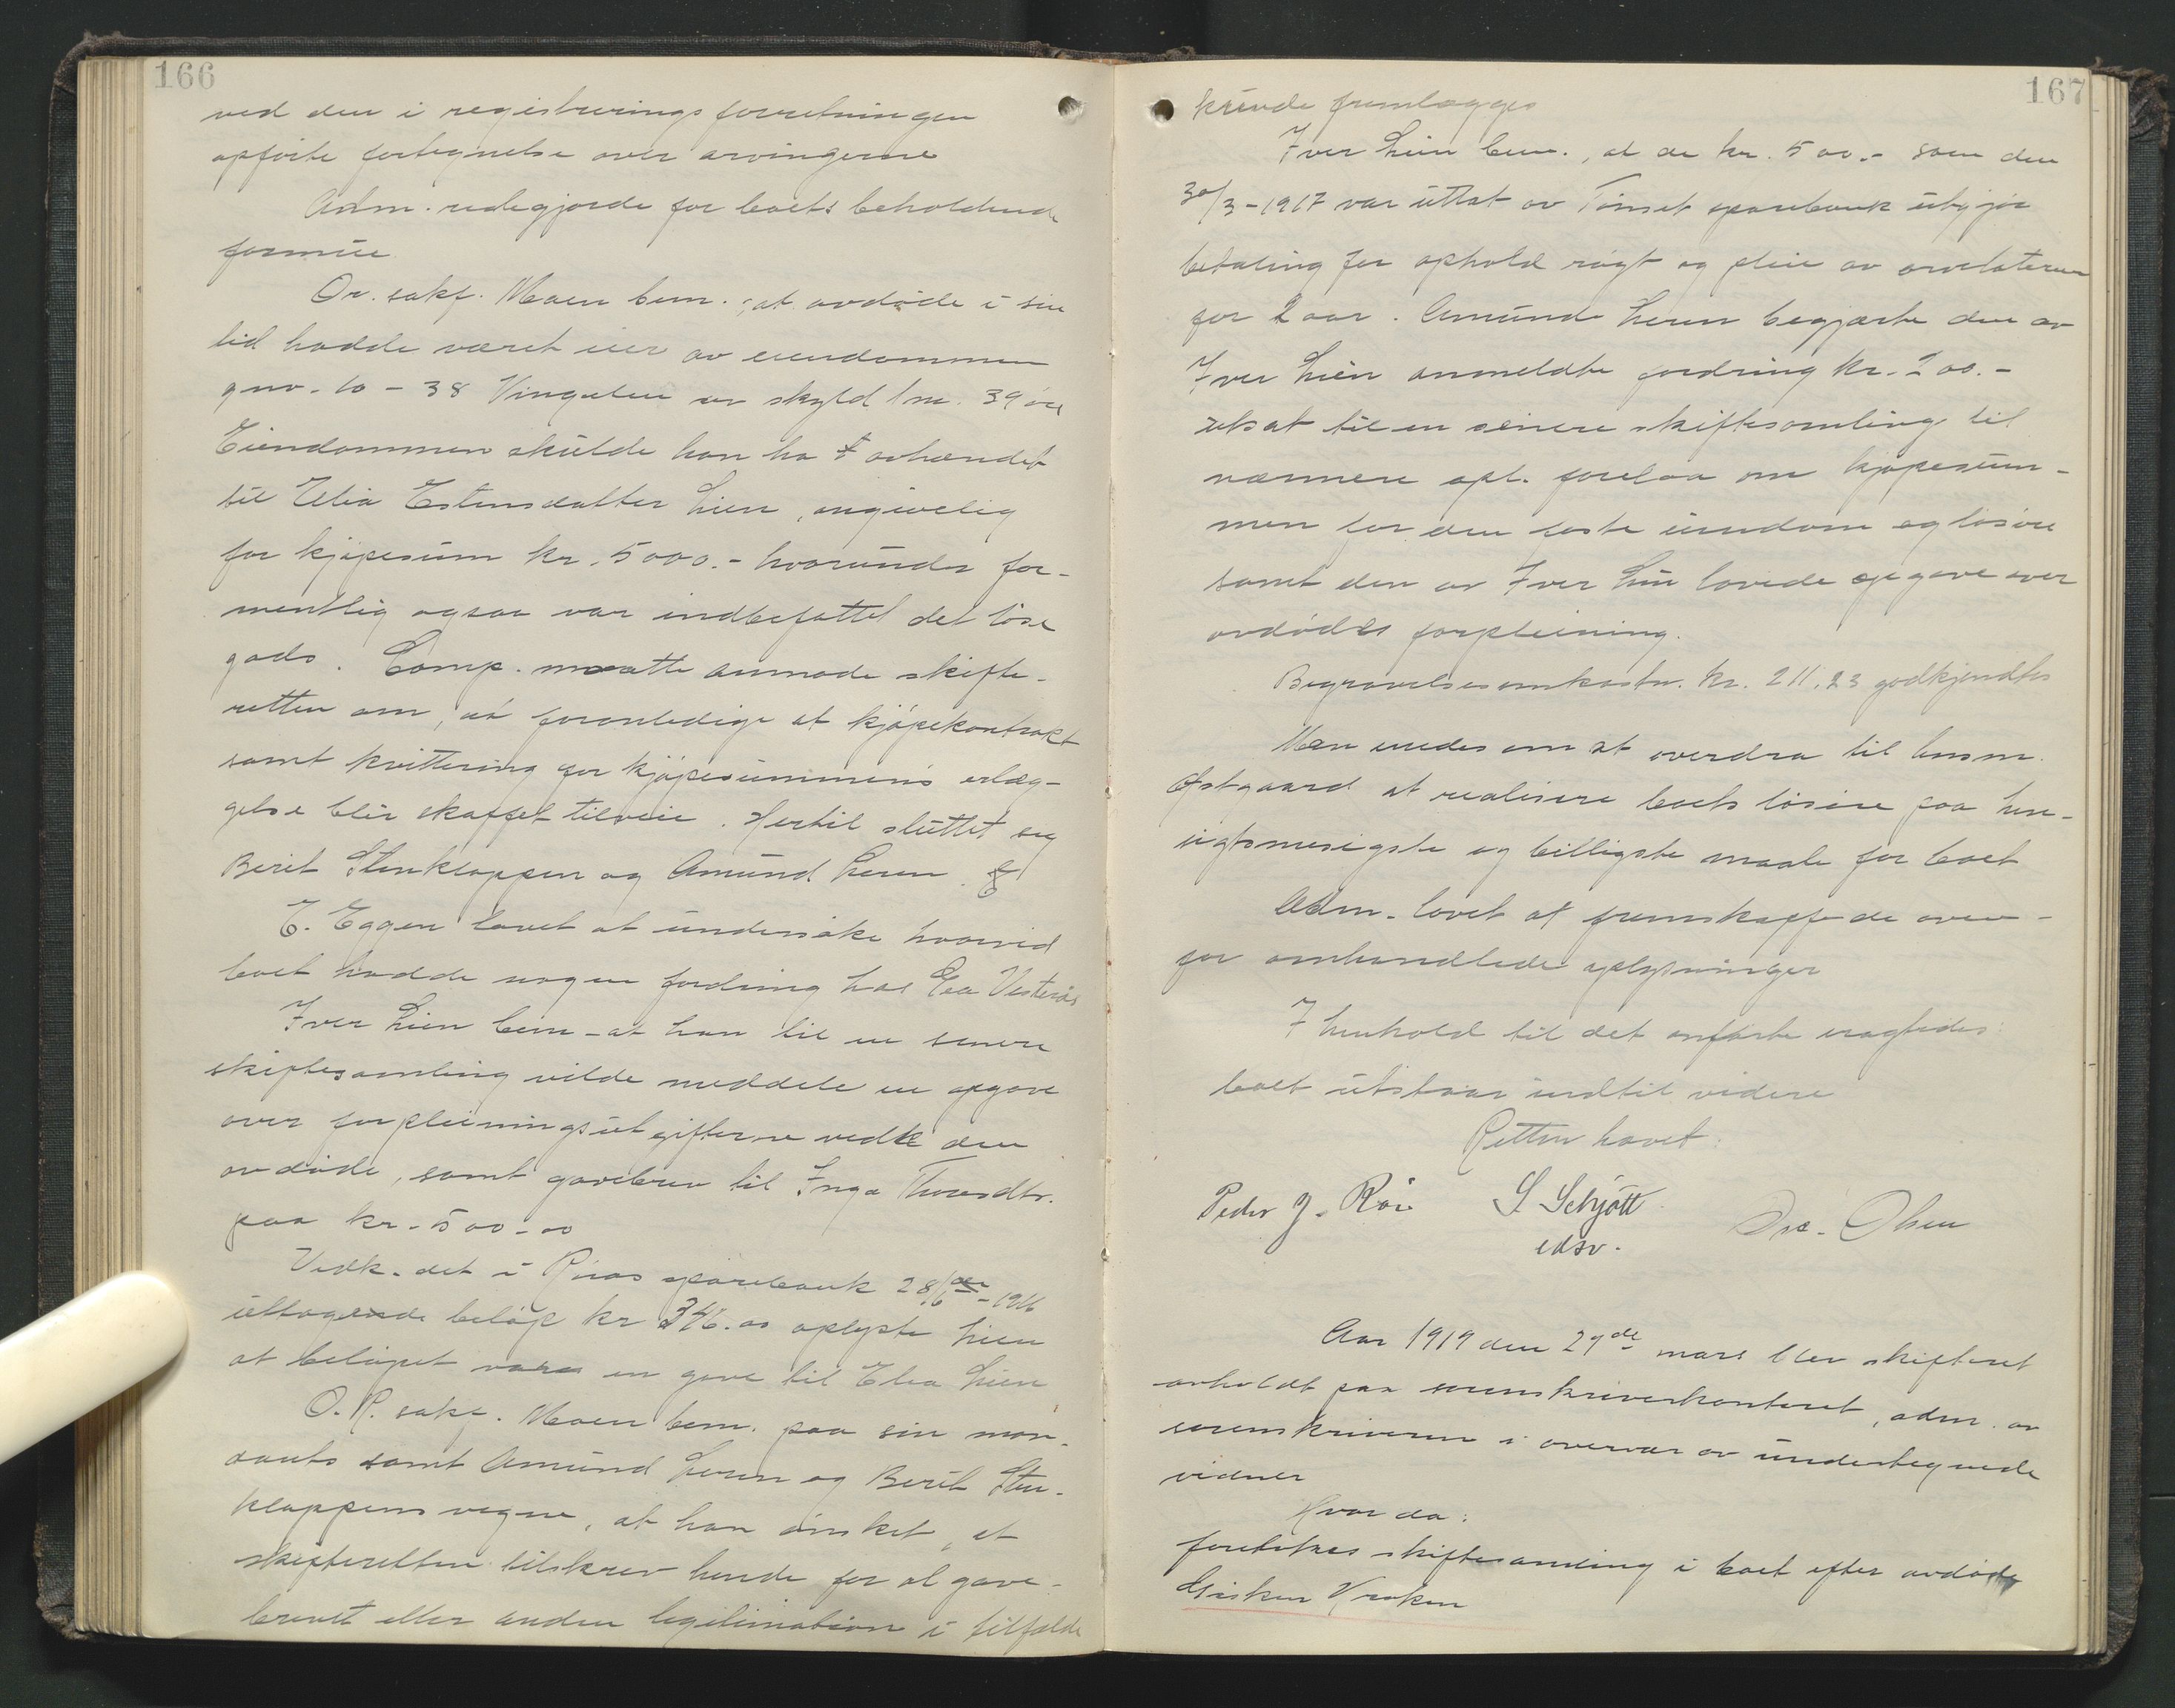 166
ved den i registreringsforretningen
opførte fortegnelse over arvingerne
Adm. redegjorde for boets beholdende
formue
Or. sakf. Moen bem., at avdøde i sin
tid hadde været eier av eiendommen
gnr. 10 - 38 Vingelen av skyld 1 m. 39 øre
Eiendommen skulde han ha avhændet
til Elia Estensdatter Lien, angivelig
for kjøpesum kr. 5000.- hvorunder for-
mentlig ogsaa var indbefattet det løse
gods. Comp. maatte anmode skifte-
retten om, at foranledige at kjøpekontrakt
samt kvittering for kjøpesummens erlæg-
gelse blir skaffet tilveie. Hertil sluttet sig
Berit Stenkloppen og Amund Leren.
E. Eggen lovet at undersøke hvorvid
boet hadde nogen fordring hos Eva Vesterås
Iver Lien bem. at han til en senere
skiftesamling vilde meddele en opgave
over forpleiningsutgifterne vedk den
avdøde, samt gavebrev til Inga Thoresdtr.
paa kr. 500.00
Vedk. det i Røros sparebank 28/6 - 1916
uttagende beløp kr 346.00 oplyste Lien
at beløpet var en gave til Elia Lien
O. R. sakf. Moen bem. paa sin man-
dants samt Amund Leren og Berit Sten-
kloppens vegne, at han ønsket, at
skifteretten tilskrev hende for at gave-
brevet eller anden legitimation i tilfælde
167
kunde fremlægges
Iver Lien bem., at de kr. 500.- som den
30/3 - 1917 var uttat av Tønset sparebank utgjør
betaling for ophold røgt og pleie av arvelateren
for 2 aar. Amund Leren begjærte den av
Iver Lien anmeldte fordring kr. 200.-
utsat til en senere skiftesamling til
nærmere opl. forelaa om kjøpesum-
men for den faste eiendom og løsøre
samt den av Iver Lien lovede opgave over
avdødes forpleining.
Begravelsesomkostn. kr. 211.23 godkjendtes
Man enedes om at overdra til lensm.
Østgaard at realisere boets løsøre paa hen-
sigtsmesigste og billigste maate for boet
Adm. lovet at fremskaffe de oven-
for omhandlede oplysninger
I henhold til det anførte eragtedes:
boet utstaar indtil videre
Retten hævet:
Peder J. Røe S. Schjøtt Olsen
edsv.
Aar 1919 den 29de mars blev skifteret
avholdt paa sorenskriverkontoret, adm. av
sorenskriveren i overvær av undertegnede
vidner
Hvor da:
foretokes skiftesamling i boet efter avdøde
Gisken Kroken